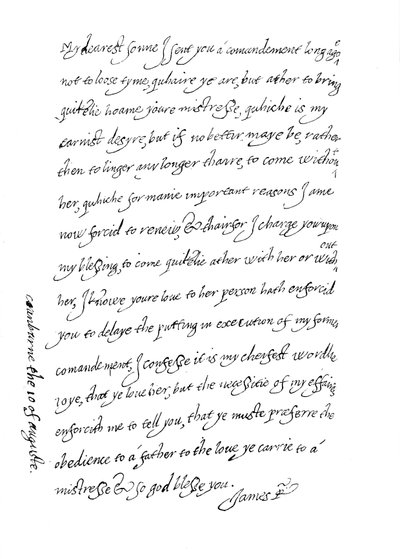 My dearest sonne I sent you á comandement long ago
not to loose tyme, quhaire ye are, but ather to bring
quikelie hoame youre mistresse, quhiche is my
earnist desyre, but if no bettir maye be, rather
then to linger any longer thaire, to come without
her, quhiche for manie important reasons I ame
now forcid to renew, & thairfor I charge you upon
my blessing, to come quikelie ather with her or without
her, I knowe youre love to her person hath enforcid
you to delaye the putting in execution of my former
comandement, I confesse it is my cheifest wordlie
joye, that ye love her, but the necessitie of my effairis
enforcith me to tell you, that ye muste preferre the
obedience to á father to the love ye carrie to á
mistresse & so god blesse you.
James R
cranbrorne the 10 of auguste.